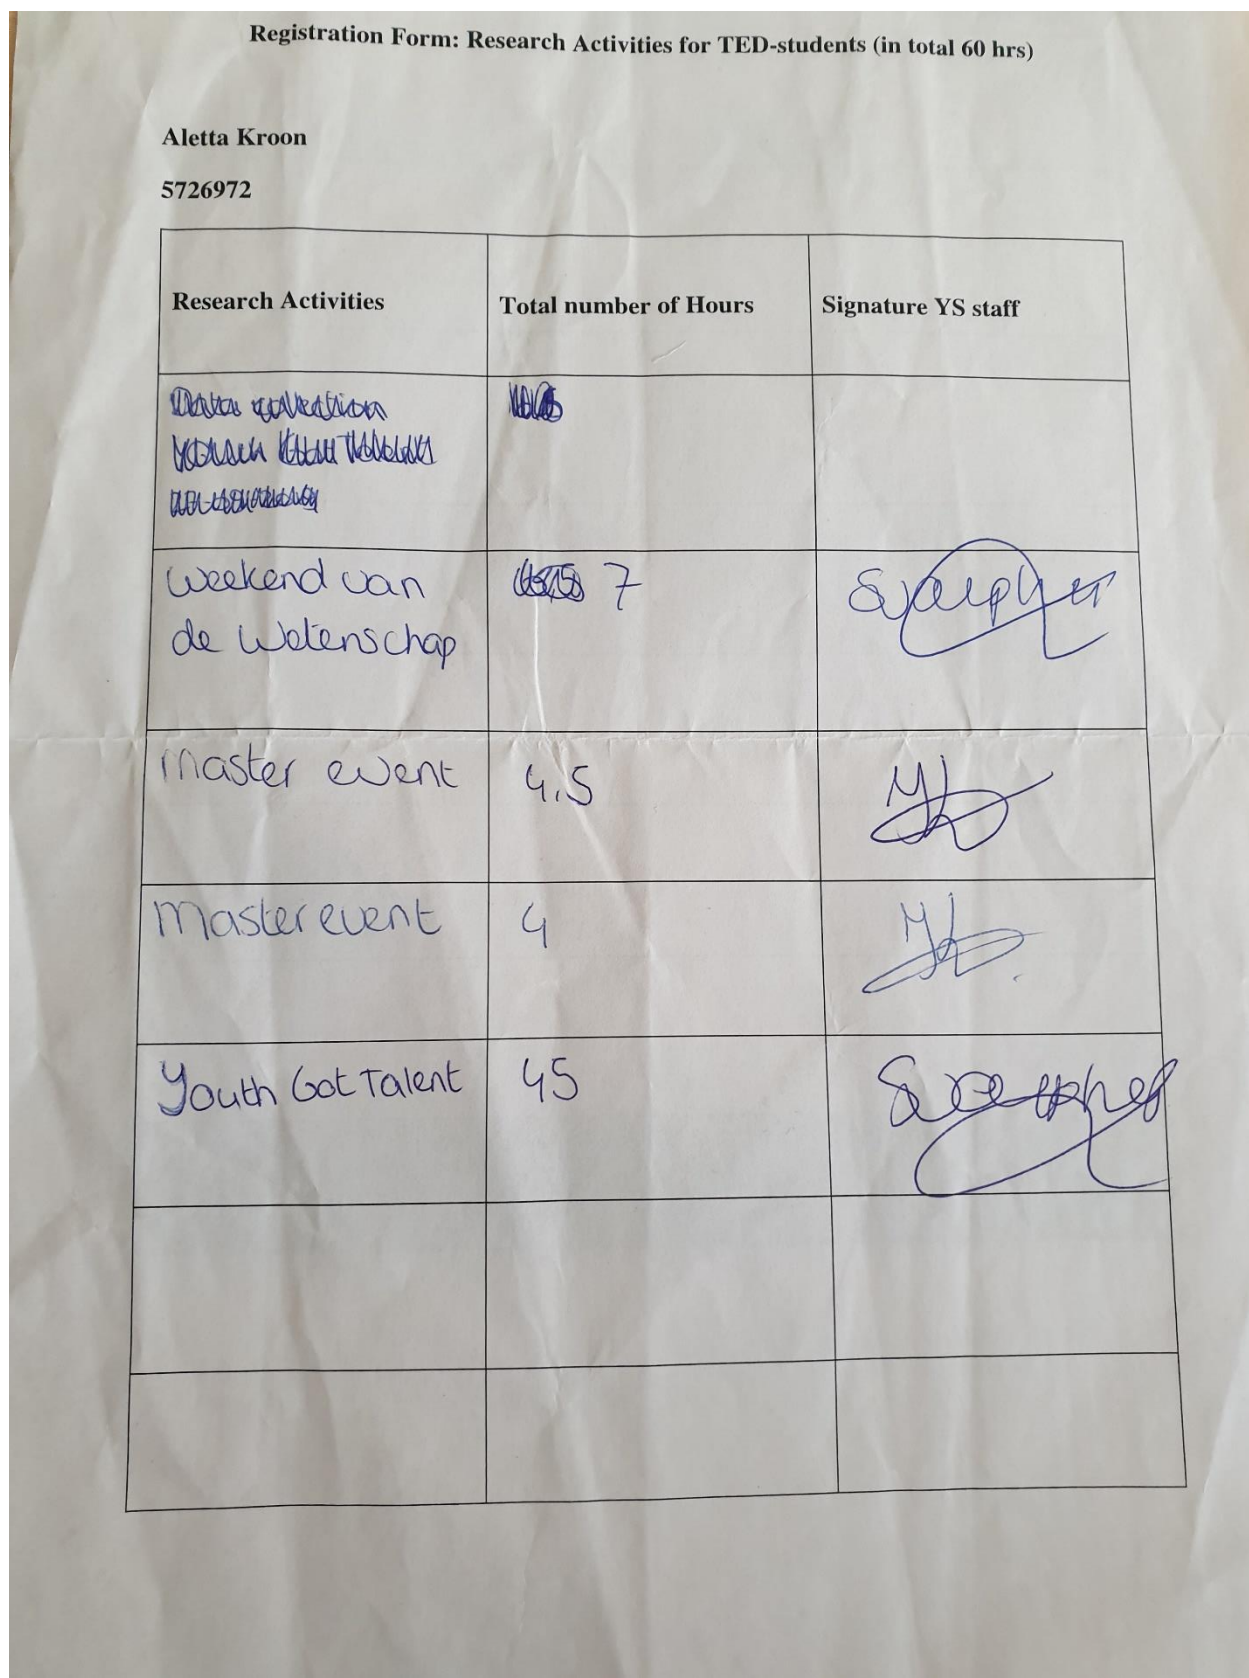 Registration Form: Research Activities for TED-students (in total 60 hrs)
Aletta Kroon
5726972
Research Activities Total number of Hours Signature YS staff
Weekend van 7
de Wetenschap
Master event 4.5
Master event 4
Youth Got Talent 45